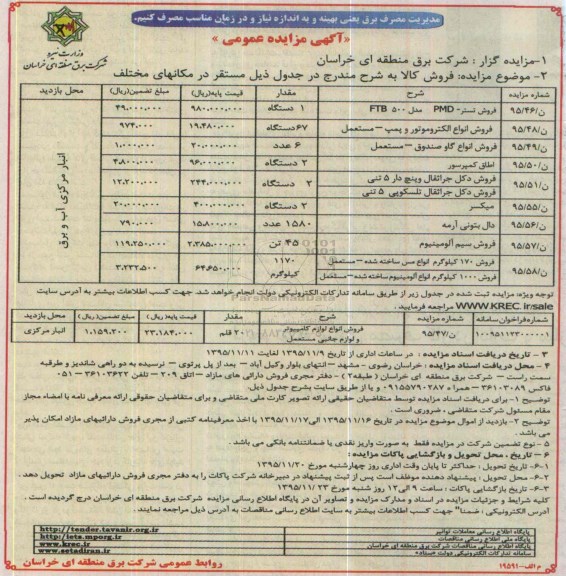 مدیریت مصرف برق یعنی بهینه و به اندازه نیاز و در زمان مناسب مصرف کنیم.
وزارت نیرو
شرکت برق منطقه ای خراسان
«آگهی مزایده عمومی»
۱-مزایده گزار : شرکت برق منطقه ای خراسان
۲- موضوع مزایده: فروش کالا به شرح مندرج در جدول ذیل مستقر در مکانهای مختلف
شماره مزایده شرح مقدار قیمت پایه(ریال) مبلغ تضمین(ریال) محل بازدید
ن/۹۵/۴۶ فروش تستر- PMD مدل FTB ۵۰۰ ۱ دستگاه ۹۸۰.۰۰۰.۰۰۰ ۴۹.۰۰۰.۰۰۰
ن/۹۵/۴۸ فروش انواع الکتروموتور و پمپ – مستعمل ۶۷دستگاه ۱۹.۴۸۰.۰۰۰ ۹۷۴.۰۰۰
ن/۹۵/۴۹ فروش انواع گاو صندوق – مستعمل ۶ عدد ۲۰.۰۰۰.۰۰۰ ۱.۰۰۰.۰۰۰
ن/۹۵/۵۰ اطاق کمپرسور ۲ دستگاه ۹۶.۰۰۰.۰۰۰ ۴.۸۰۰.۰۰۰
ن/۹۵/۵۱ فروش دکل جراثقال وینچ دار ۵ تنی ۲ دستگاه ۲۴۴.۰۰۰.۰۰۰ ۱۲.۲۰۰.۰۰۰
فروش دکل جراثقال تلسکوپی ۵ تنی
ن/۹۵/۵۵ میکسر ۲ دستگاه ۴۰۰.۰۰۰.۰۰۰ ۲۰.۰۰۰.۰۰۰
ن/۹۵/۵۶ دال بتونی آرمه ۱۵۸۰ عدد ۱۵.۸۰۰.۰۰۰ ۷۹۰.۰۰۰
ن/۹۵/۵۷ فروش سیم آلومینیوم ۴۵ تن ۲.۳۸۵.۰۰۰.۰۰۰ ۱۱۹.۲۵۰.۰۰۰
ن/۹۵/۵۸ فروش ۱۷۰ کیلوگرم انواع مس ساخته شده – مستعمل ۱۱۷۰ کیلوگرم ۶۴.۶۵۰.۰۰۰ ۳.۲۳۲.۵۰۰
فروش ۱۰۰۰ کیلوگرم انواع آلومینیوم ساخته شده – مستعمل
انبار مرکزی آب و برق
توجه ویژه: مزایده ثبت شده در جدول زیر از طریق سامانه تدارکات الکترونیکی دولت انجام خواهد شد. جهت کسب اطلاعات بیشتر به آدرس سایت
WWW.KREC.ir/sale مراجعه فرمایید.
شماره فراخوان سامانه شماره مزایده شرح مقدار قیمت پایه( ریال) مبلغ تضمین( ریال) محل بازدید
۱۰۰۹۵۱۱۲۳۰۰۰۰۰۱ ن/۹۵/۴۷ فروش انواع لوازم کامپیوتر و لوازم جانبی مستعمل ۲۰ قلم ۲۳.۱۸۴.۰۰۰ ۱.۱۵۹.۲۰۰ انبار مرکزی
۳ - تاریخ دریافت اسناد مزایده : در ساعات اداری از تاریخ ۱۳۹۵/۱۱/۹ لغایت ۱۳۹۵/۱۱/۱۱
۴ - محل دریافت اسناد مزایده : خراسان رضوی – مشهد – انتهای بلوار وکیل آباد – بعد از پل پرتوی – نرسیده به دو راهی شاندیز و طرقبه
سمت راست – شرکت برق منطقه ای خراسان ( طبقه۲ ) - دفتر مجری فروش دارائی های مازاد – اتاق ۲۰۹ - تلفن ۳۶۱۰۳۶۲۲ – ۰۵۱
فاکس ۳۶۱۰۳۰۸۹ – همراه ۰۹۱۵۵۷۹۰۲۸۷ و یا از طریق سایت بشرح جدول ذیل.
توضیح ۱- برای دریافت اسناد مزایده توسط متقاضیان حقیقی ارائه تصویر کارت ملی متقاضی و برای متقاضیان حقوقی ارائه معرفی نامه با امضاء مجاز
مقام مسئول شرکت متقاضی ، ضروری است .
توضیح ۲- بازدید از اموال موضوع مزایده در تاریخ ۱۳۹۵/۱۱/۱۶ الی ۱۳۹۵/۱۱/۱۷ با اخذ معرفینامه کتبی از مجری فروش دارائیهای مازاد امکان پذیر
می باشد .
۵ - نوع تضمین شرکت در مزایده فقط به صورت واریز نقدی یا ضمانتنامه بانکی می باشد .
۶ – تاریخ ، محل تحویل و بازگشایی پاکات مزایده :
۶-۱- تاریخ تحویل : حداکثر تا پایان وقت اداری روز چهارشنبه مورخ ۱۳۹۵/۱۱/۲۰
۶-۲- محل تحویل : پیشنهاد دهنده موظف است پس از ثبت پیشنهاد در دبیرخانه شرکت پاکات را به دفتر مجری فروش دارائیهای مازاد تحویل دهد .
۶-۳- تاریخ بازگشایی پاکات : ساعت ۹ الی ۱۲ روز شنبه مورخ ۱۳۹۵/۱۱/۲۳
کلیه شرایط و جزئیات مزایده در اسناد و مدارک مزایده و تصاویر آن در پایگاه اطلاع رسانی مزایده شرکت برق منطقه ای خراسان درج گردیده است .
آدرس الکترونیکی ، ضمنا" جهت کسب اطلاعات بیشتر به سایت اطلاع رسانی مناقصات در آدرس ذیل مراجعه نمایند.
پایگاه اطلاع رسانی معاملات توانیر http://tender.tavanir.org.ir
پایگاه ملی اطلاع رسانی مناقصات http://iets.mporg.ir
پایگاه اطلاع رسانی مناقصات شرکت برق منطقه ای خراسان www.krec.ir
سامانه تدارکات الکترونیکی دولت «ستاد» www.setadiran.ir
م الف-۱۹۵۹۱
روابط عمومی شرکت برق منطقه ای خراسان